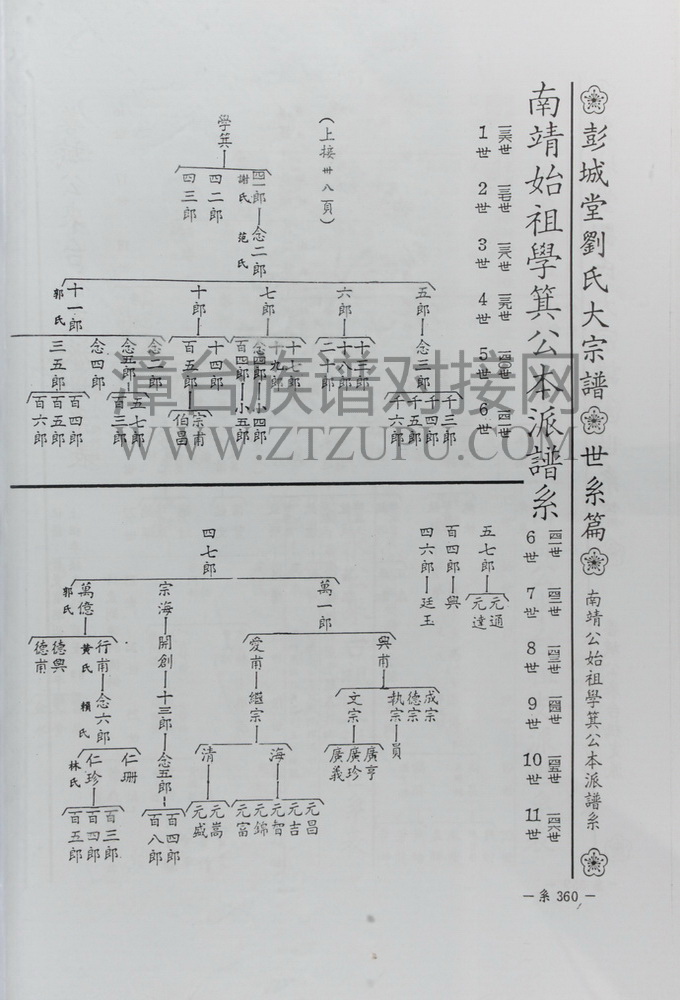 彭城堂劉氏大宗譜 世系篇 南靖公始祖學箕公本派譜系
南靖始祖學箕公本派譜系
1世 2世 3世 4世 5世 6世
(上接卅八頁)
學箕
四一郎 謝氏 念二郎 范氏
四二郎
四三郎
五郎 六郎 七郎 十郎 十一郎 郭氏
念三郎
千三郎 千四郎 千五郎 千六郎
十三郎 十八郎 二十郎
十七郎 十九郎 念四郎 小四郎
百四郎 小五郎
十四郎 宗甫 伯昌
百五郎
念五郎 五七郎 百三郎
念四郎
三五郎 百四郎 百五郎 百六郎
6世 7世 8世 9世 10世 11世
五七郎 元通 元達
百四郎 興
四六郎 廷玉
四七郎
萬一郎 宗海 萬億 郭氏
興甫 成宗 德宗 執宗 員
文宗 廣亨 廣珍 廣義
愛甫 繼宗
海 元昌 元吉 元智 元錦 元富
清 元嵩 元盛
開創 十三郎 念五郎 百四郎 百八郎
行甫 黃氏 念六郎 賴氏
仁珊
仁珍 林氏 百三郎 百四郎 百五郎
德興
德甫
系 360
漳台族谱对接网
WWW.ZTZUPU.COM